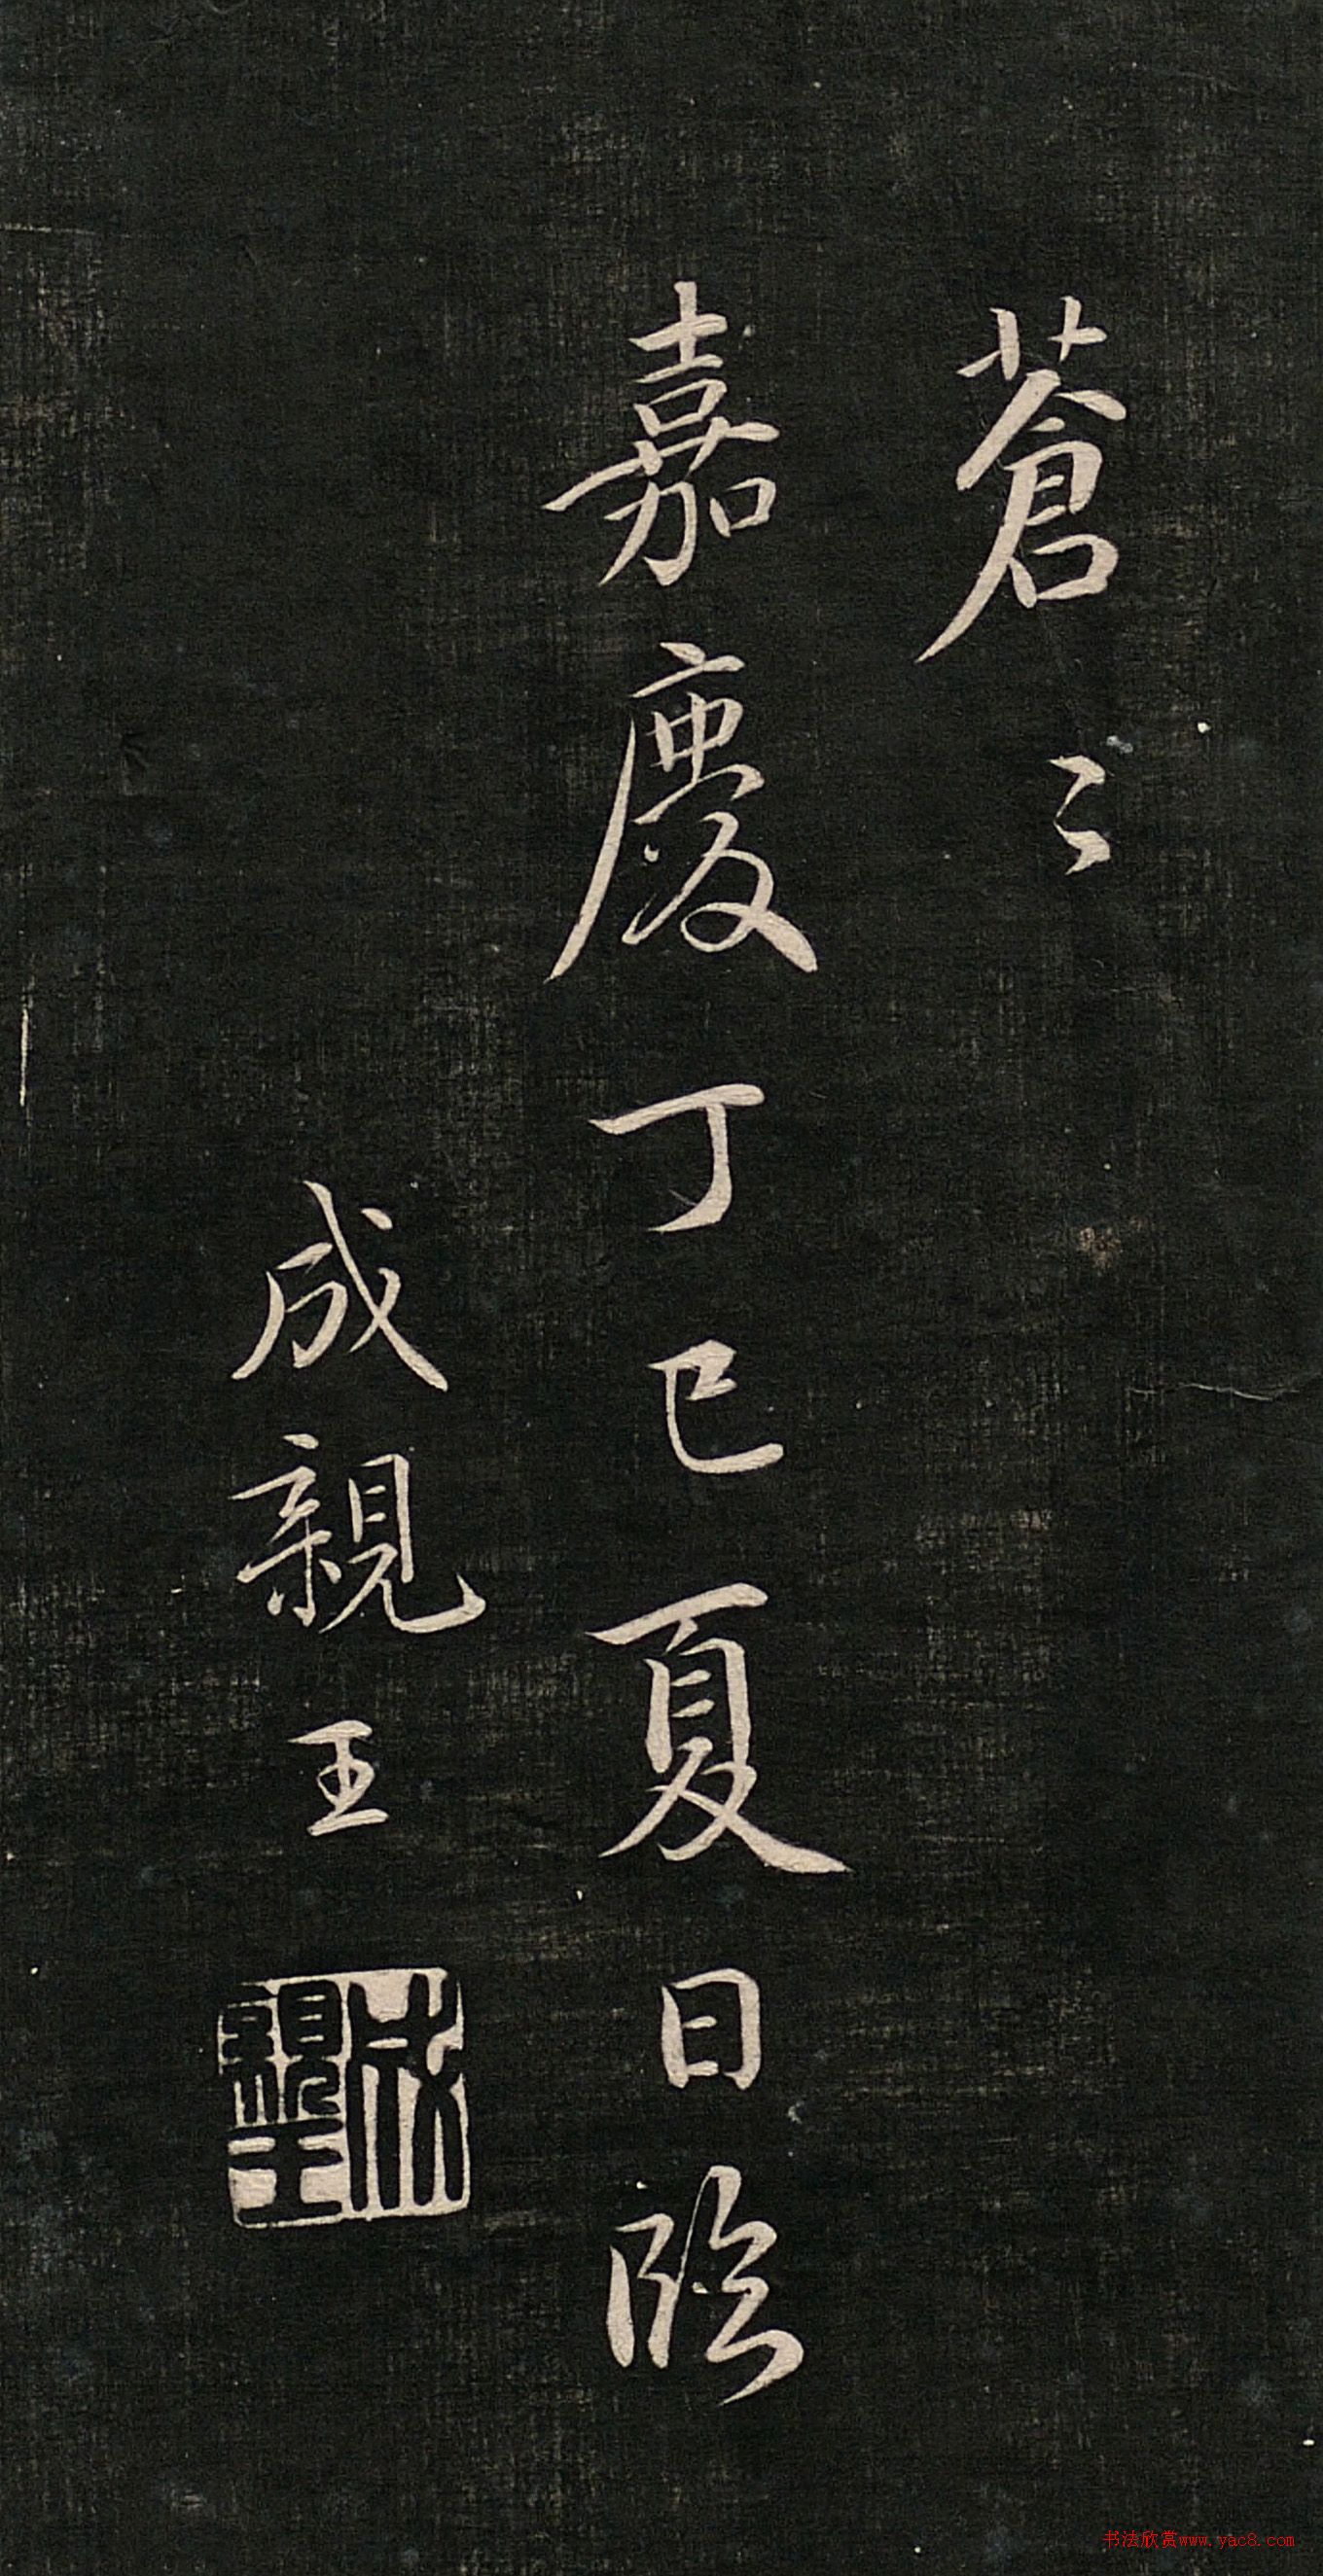 蒼〻
嘉慶丁巳夏日臨
成親王
成親王
书法欣赏www.yac8.com